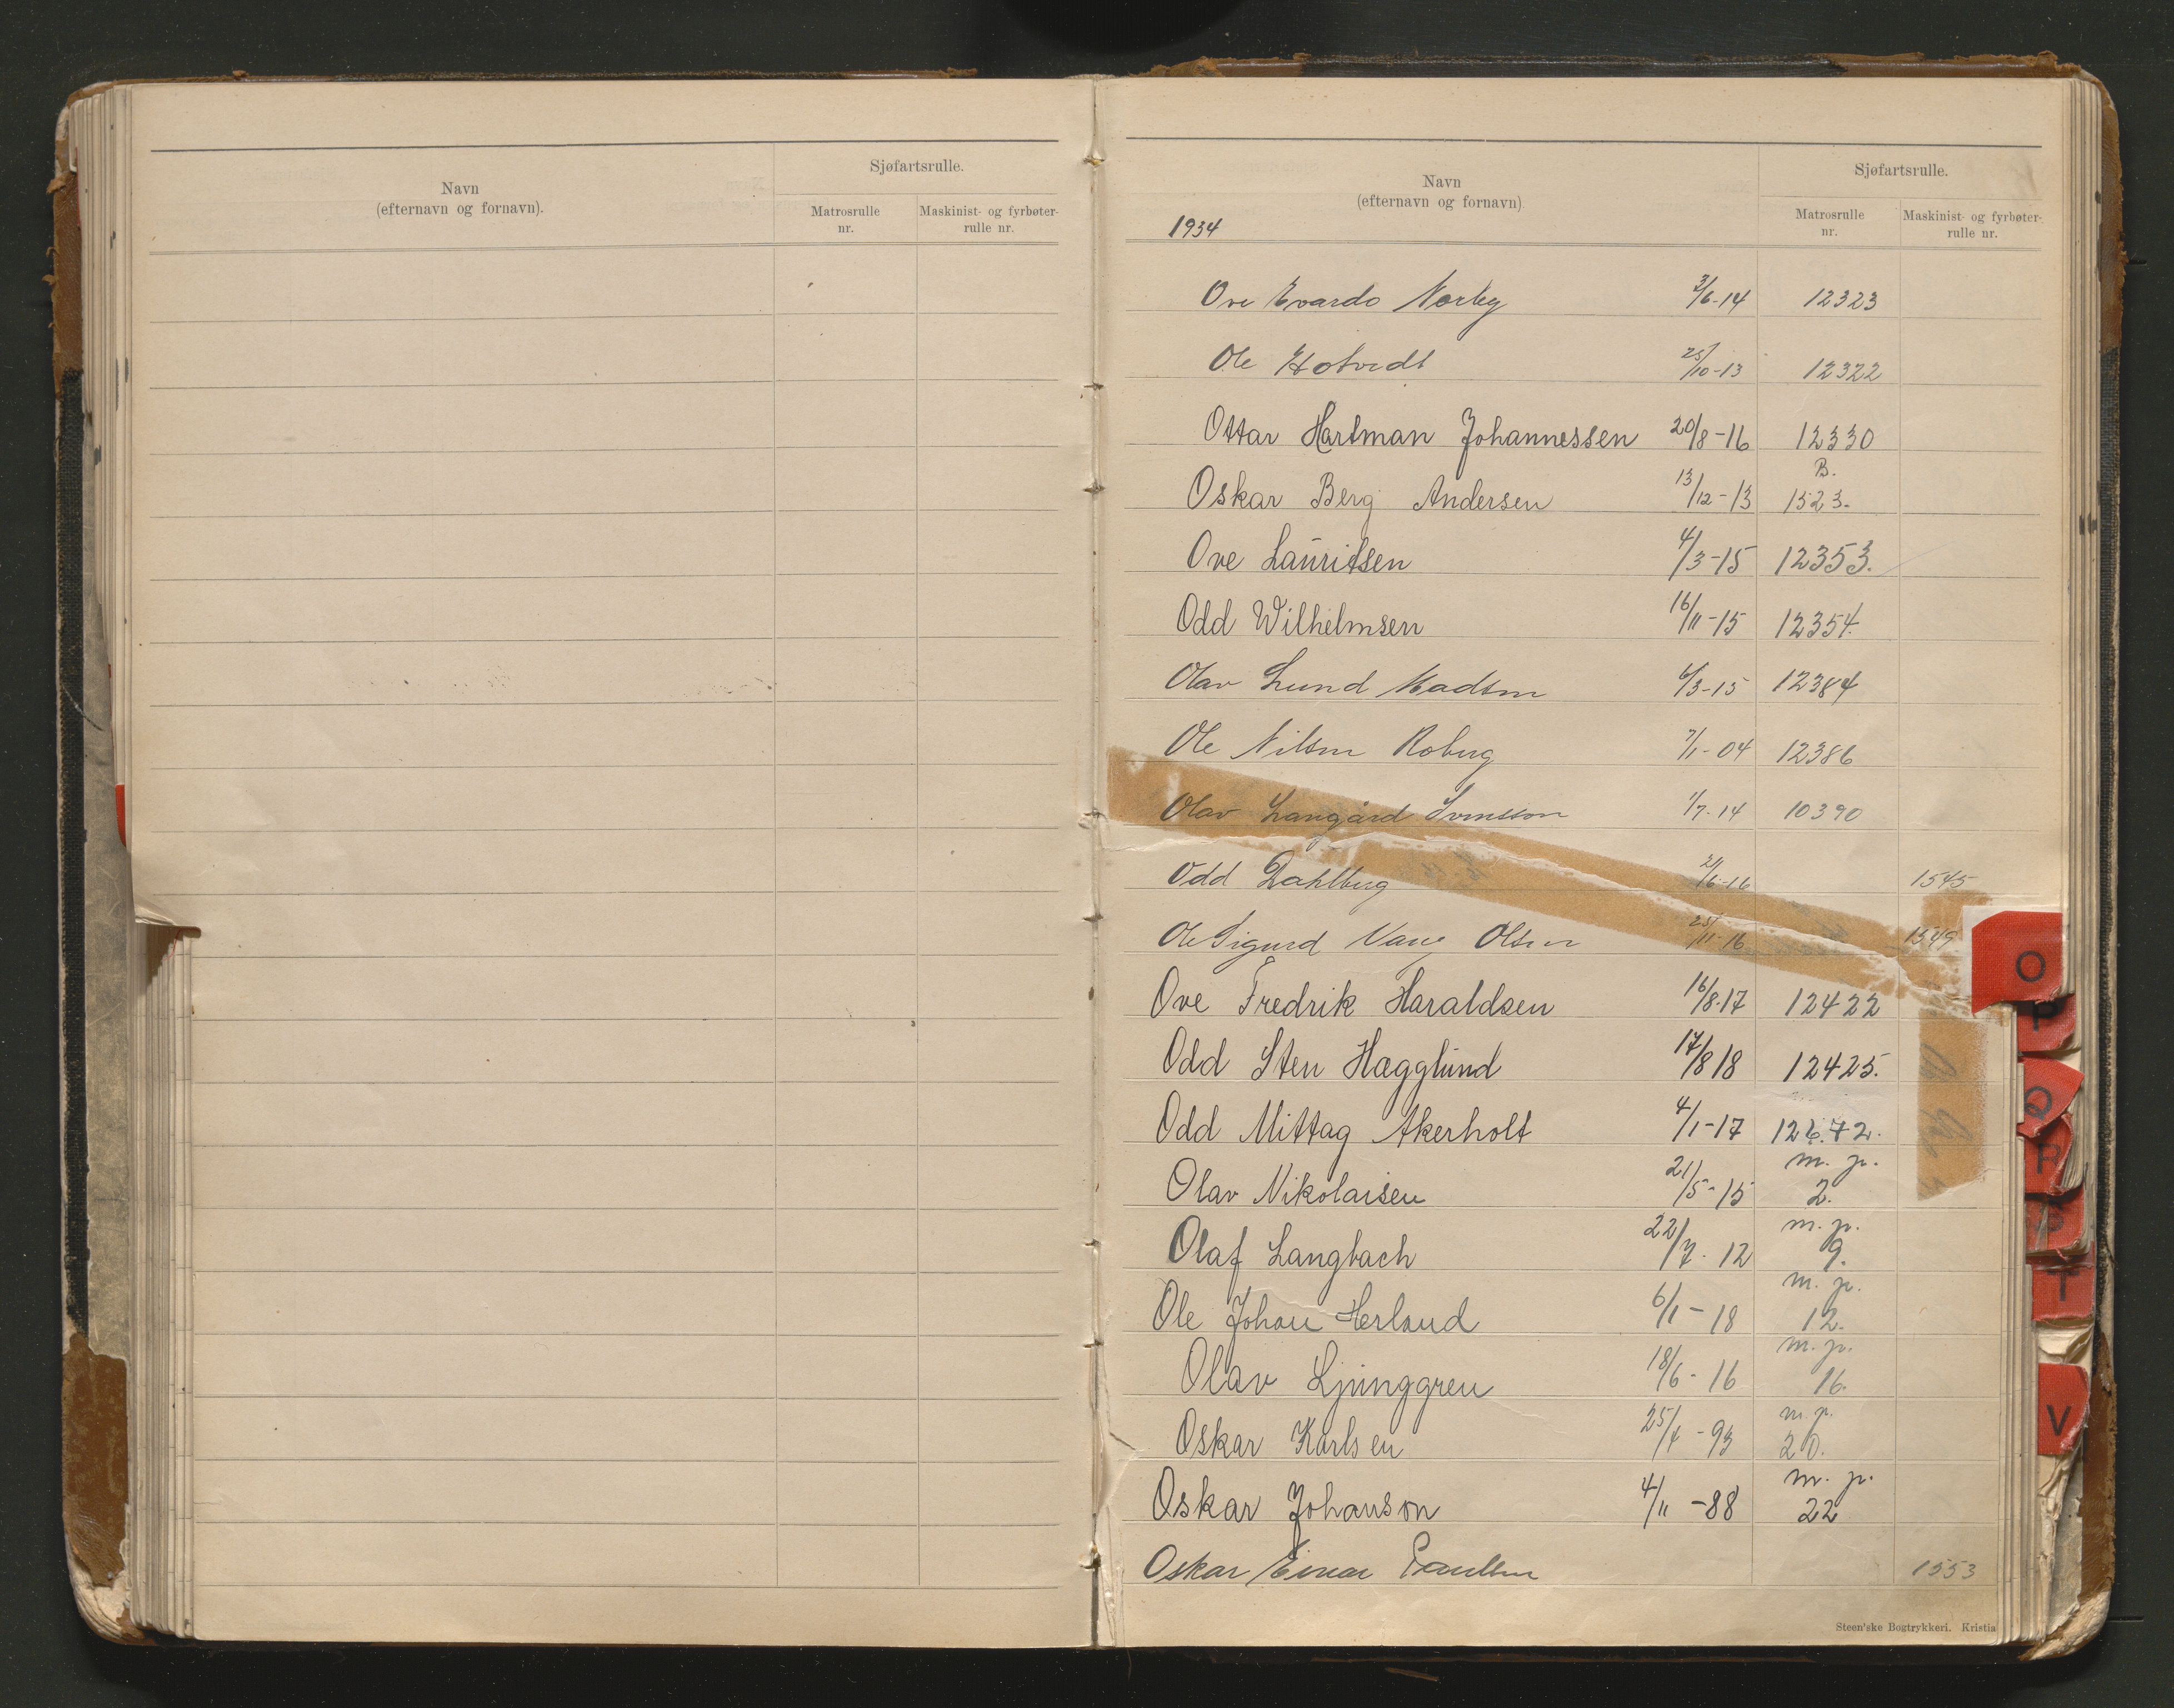 Navn
(efternavn og fornavn).
Sjøfartsrulle.
Matrosrulle
nr.
Maskinist- og fyrbøter-
rulle nr.
Navn
(efternavn og fornavn)
Sjøfartsrulle.
Matrosrulle
nr.
Maskinist- og fyrbøter-
rulle nr.
1934
Ove Evardo Nørby 3/6-14 12323
Ole Hotvedt 25/10-13 12322
Ottar Hartman Johannessen 20/8-16 12330
Oskar Berg Andersen 13/12-13 B. 1523.
Ove Lauritsen 4/3-15 12353.
Odd Wilhelmsen 16/11-15 12354.
Olav Lund Madsen 6/3-15 12384
Ole Nilsen Roberg 7/1-04 12386
Olav Langård Svensson 1/7-14 10390
Odd Dahlberg 2/6-16 1545
Ole Sigurd Vang Olsen 25/11-16 1549
Ove Fredrik Haraldsen 16/8-17 12422
Odd Sten Hægglund 17/8 18 12425.
Odd Mittag Akerholt 4/1-17 12672.
Olav Nikolaisen 21/5-15 m. p. 2.
Olaf Langbach 22/7-12 m. p. 9.
Ole Johan Herland 6/1-18 m. p. 12.
Olav Ljunggren 18/6-16 m. p. 16.
Oskar Karlsen 25/4-93 m. p. 20.
Oskar Johanson 4/11-88 m. p. 22
Oskar Einar Paulsen 1553
Steen'ske Bogtrykkeri. Kristia
O
P
Q
R
S
T
V